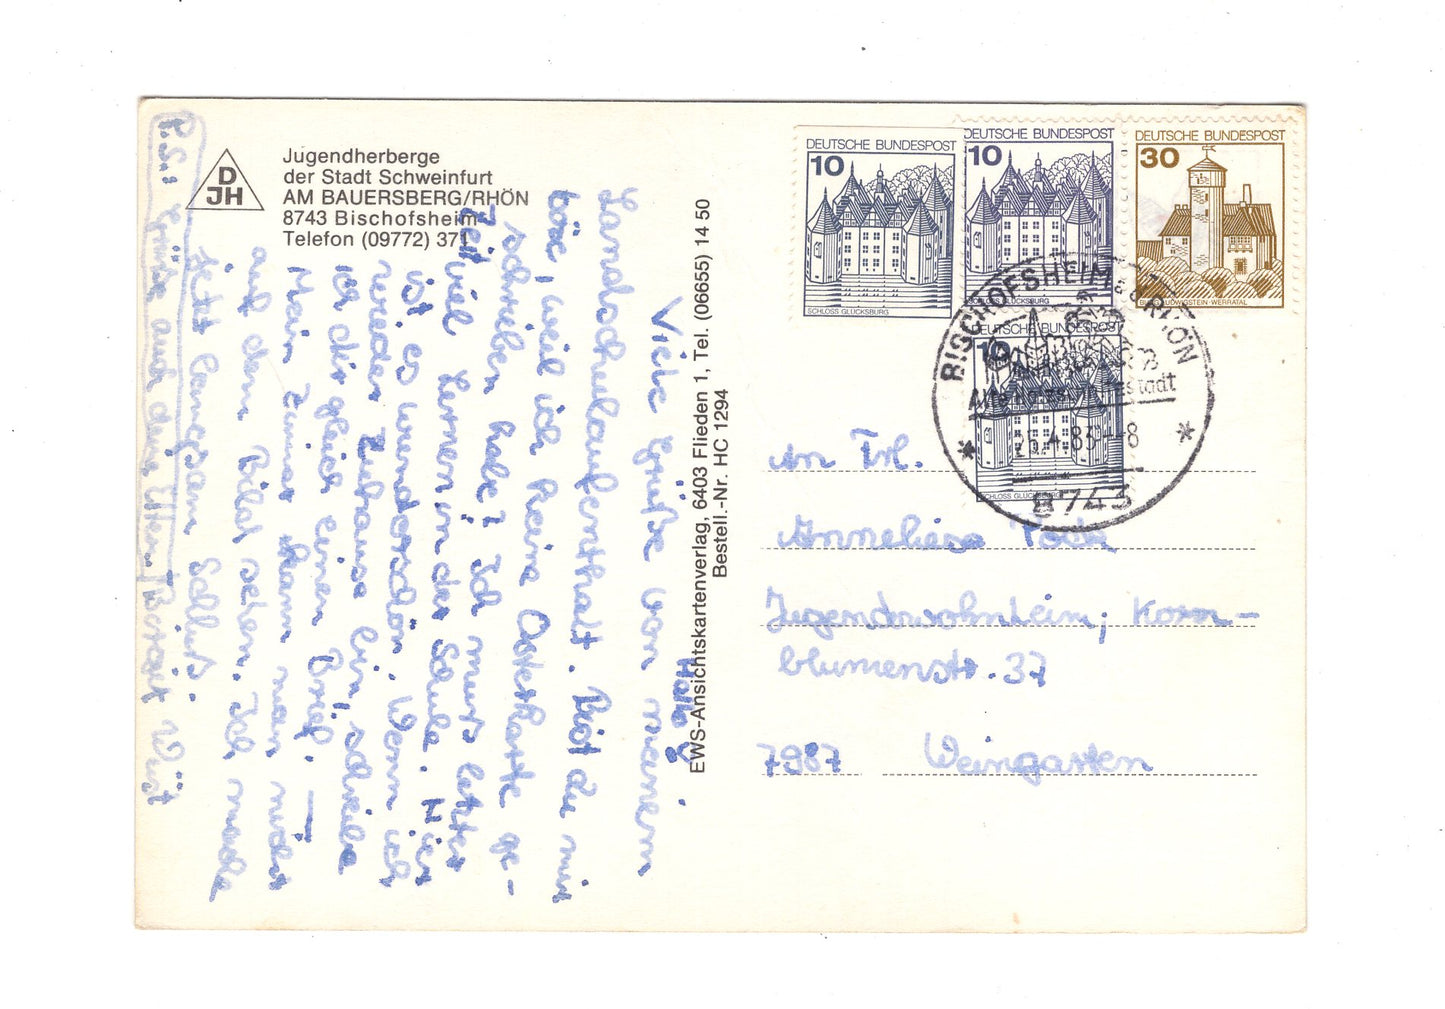 D
JH
Jugendherberge
der Stadt Schweinfurt
AM BAUERSBERG/RHÖN
8743 Bischofsheim
Telefon (09772) 371
Hallo!
Viele Grüße von meinem
Landschulaufenthalt. Bist du mir
böse, weil ich keine Osterkarte ge-
schrieben habe? Ich muß letzter
Zeit viel lernen in der Schule. Hier
ist es wunderschön. Wenn ich
wieder Zuhause bin, schreibe
ich dir gleich einen Brief. –
Mein Zimmer kann man nicht
auf dem Bild sehen. Ich mache
jetzt langsam Schluß.
P.S.: Grüße auch deine Eltern. Tschüß
EWS-Ansichtskartenverlag, 6403 Flieden 1, Tel. (06655) 14 50
Bestell.-Nr. HC 1294
DEUTSCHE BUNDESPOST
10
SCHLOSS GLÜCKSBURG
DEUTSCHE BUNDESPOST
10
SCHLOSS GLÜCKSBURG
DEUTSCHE BUNDESPOST
30
BURG LUDWIGSTEIN-WERRATAL
DEUTSCHE BUNDESPOST
10
SCHLOSS GLÜCKSBURG
BISCHOFSHEIM RHÖN
8743
An Frl.
Anneliese
Jugendwohnheim, Korn-
blumenstr. 37
7987 Weingarten